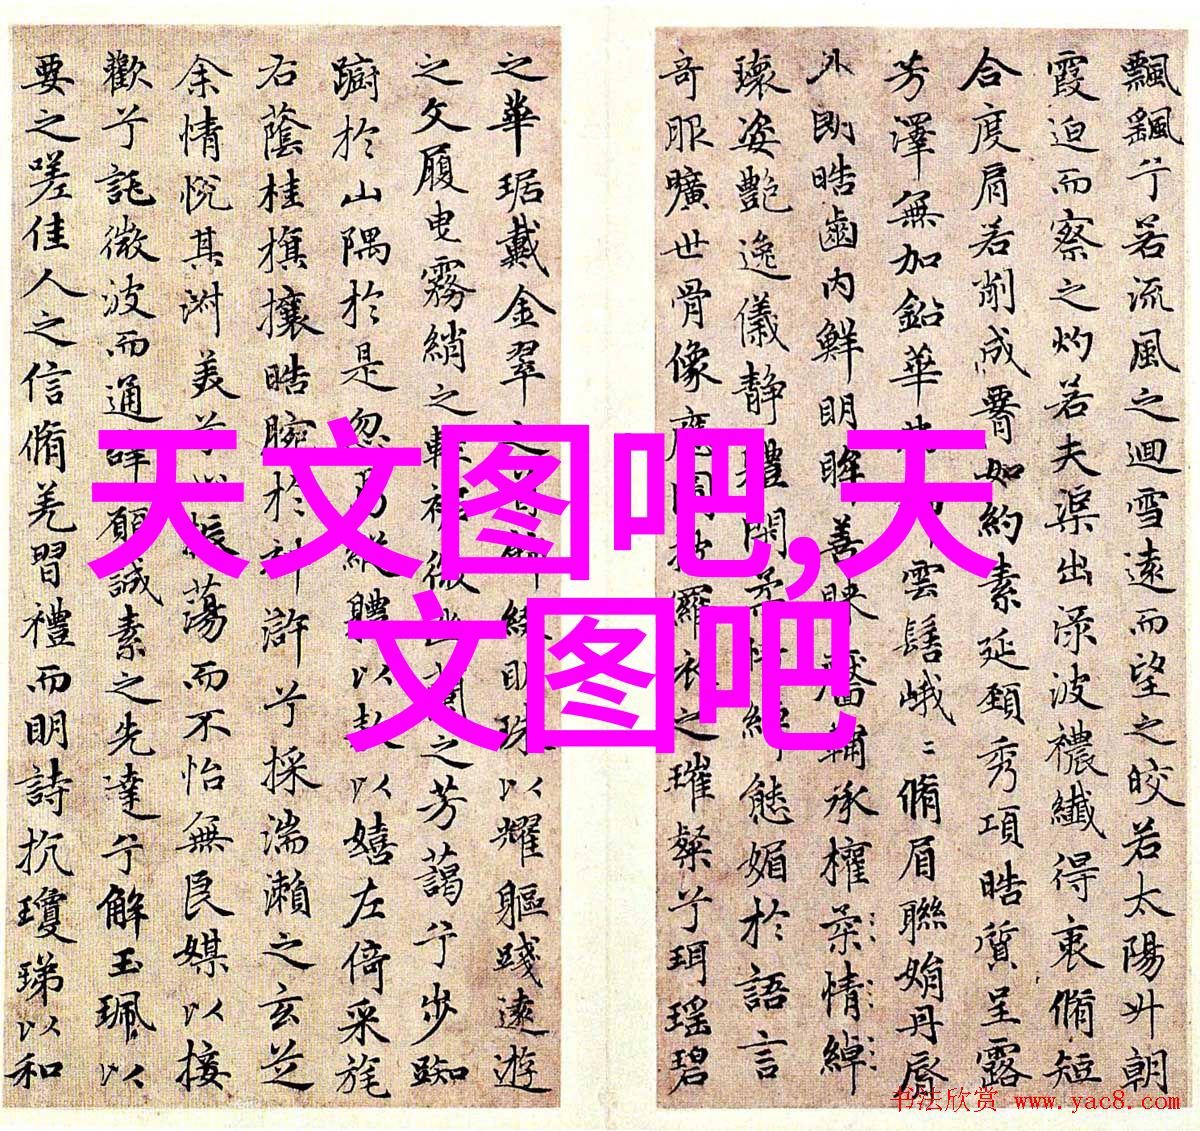 飄飖兮若流風之迴雪遠而望之皎若太陽升朝
霞迫而察之灼若夫渠出淥波襛纖得衷脩短
合度肩若削成腰如約素延頸秀項皓質呈露
芳澤無加鉛華雲髻峨〻脩眉聯娟丹唇
外朗皓齒内鮮明眸善睞輔承權柔情綽
瓌姿艷逸儀静體閑態媚於語言
奇服曠世骨像應圖羅衣之璀粲兮珥瑤碧
之華琚戴金翠之首以耀軀踐遠遊
之文履曳霧綃之輕之芳藹兮步踟
蹰於山隅於是忽焉縱體以以嬉左倚采旄
右蔭桂旗攘皓腕於滸兮採湍瀨之玄芝
余情悅其淑美兮蕩而不怡無良媒以接
歡兮託微波而通辭願誠素之先達兮解玉珮以
要之嗟佳人之信脩羌習禮而明詩抗瓊珶以和
天文图吧,天
文图吧
书法欣赏 www.yac8.com